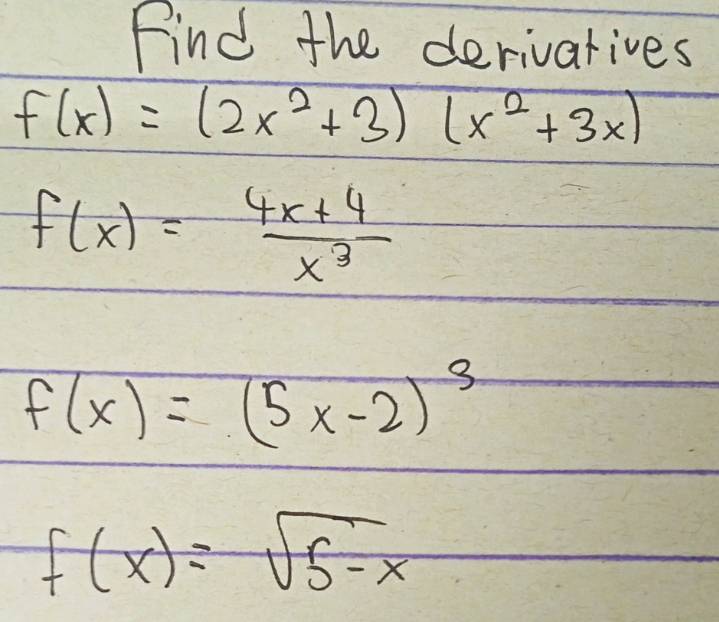 Find the derivatives
f(x) = (2x²+3) (x²+3x)
f(x) = (4x+4)/x³
f(x) = (5x-2)³
f(x) = √(5-x)